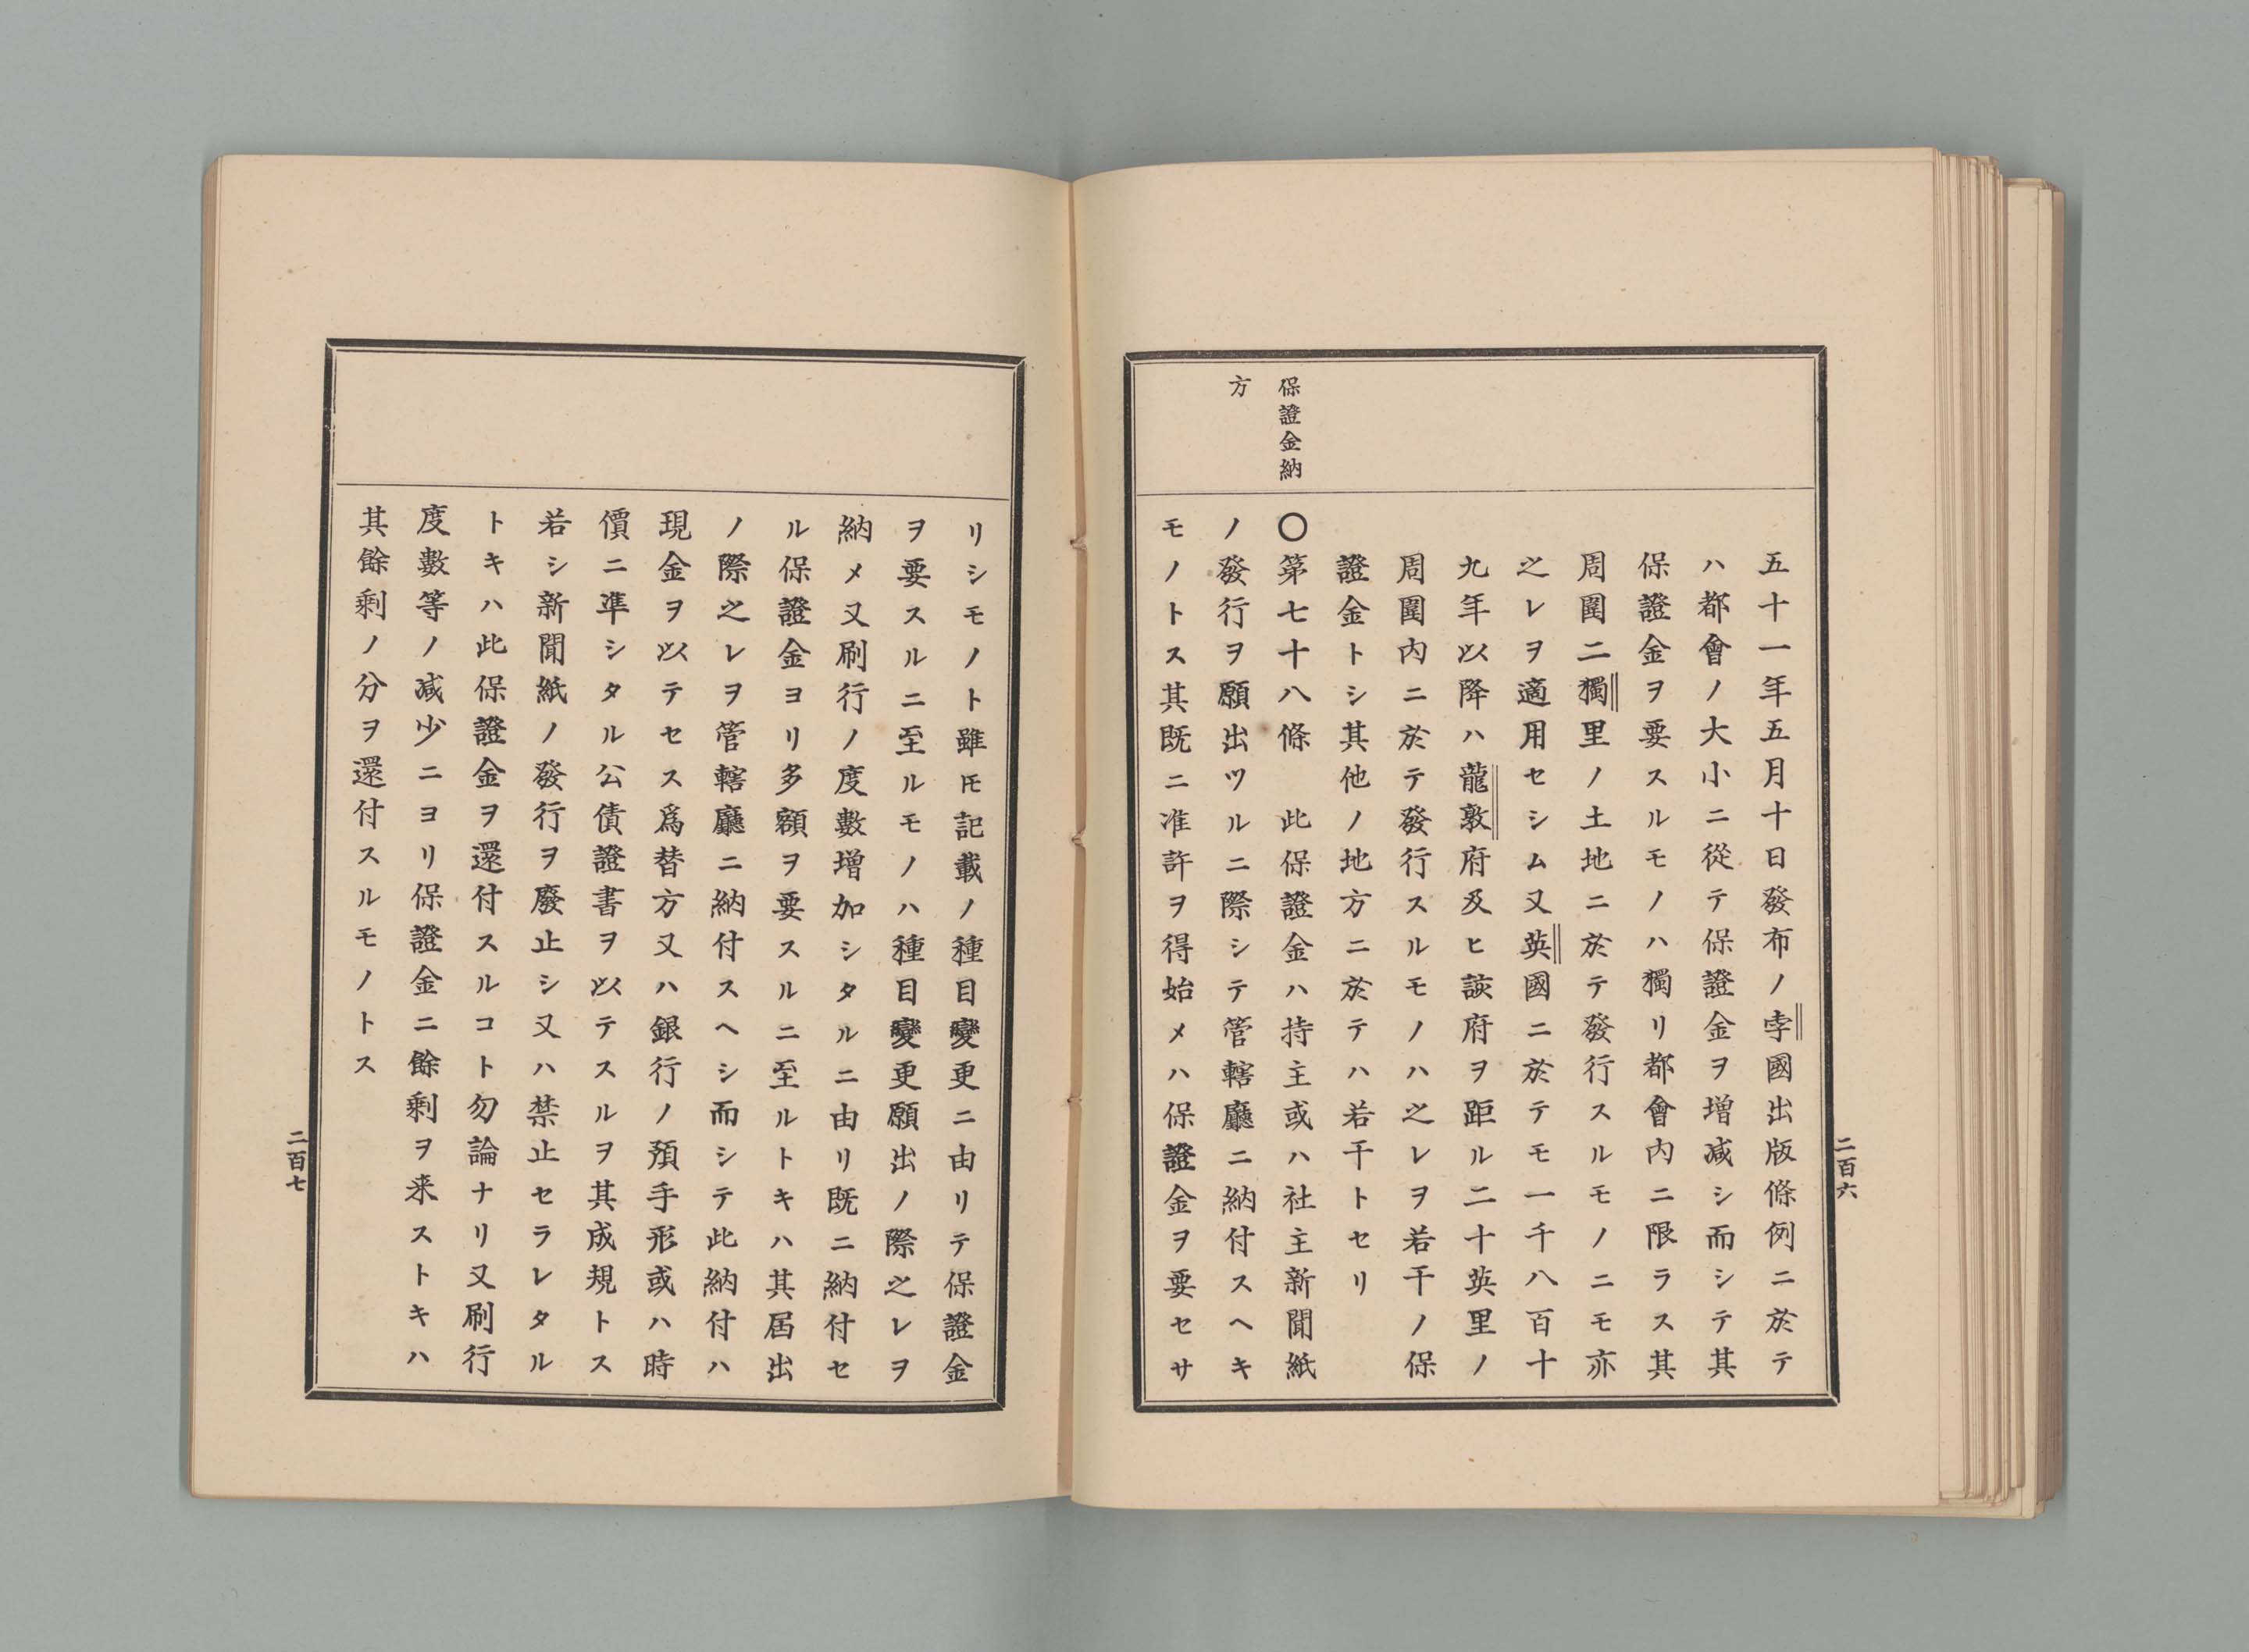 保證金納
方
五十一年五月十日發布ノ孛國出版條例ニ於テ
ハ都會ノ大小ニ從テ保證金ヲ增减シ而シテ其
保證金ヲ要スルモノハ獨リ都會內ニ限ラス其
周圍二獨里ノ土地ニ於テ發行スルモノニモ亦
之レヲ適用セシム又英國ニ於テモ一千八百十
九年以降ハ龍敦府及ヒ該府ヲ距ル二十英里ノ
周圍內ニ於テ發行スルモノハ之レヲ若干ノ保
證金トシ其他ノ地方ニ於テハ若干トセリ
〇第七十八條　此保證金ハ持主或ハ社主新聞紙
ノ發行ヲ願出ツルニ際シテ管轄廳ニ納付スヘキ
モノトス其既ニ准許ヲ得始メハ保證金ヲ要セサ
二百六
リシモノト雖𪜈記載ノ種目變更ニ由リテ保證金
ヲ要スルニ至ルモノハ種目變更願出ノ際之レヲ
納メ又刷行ノ度數增加シタルニ由リ既ニ納付セ
ル保證金ヨリ多額ヲ要スルニ至ルトキハ其屆出
ノ際之レヲ管轄廳ニ納付スヘシ而シテ此納付ハ
現金ヲ以テセス爲替方又ハ銀行ノ預手形或ハ時
價ニ凖シタル公債證書ヲ以テスルヲ其成規トス
若シ新聞紙ノ發行ヲ廢止シ又ハ禁止セラレタル
トキハ此保證金ヲ還付スルコト勿論ナリ又刷行
度數等ノ减少ニヨリ保證金ニ餘剩ヲ来ストキハ
其餘剩ノ分ヲ還付スルモノトス
二百七